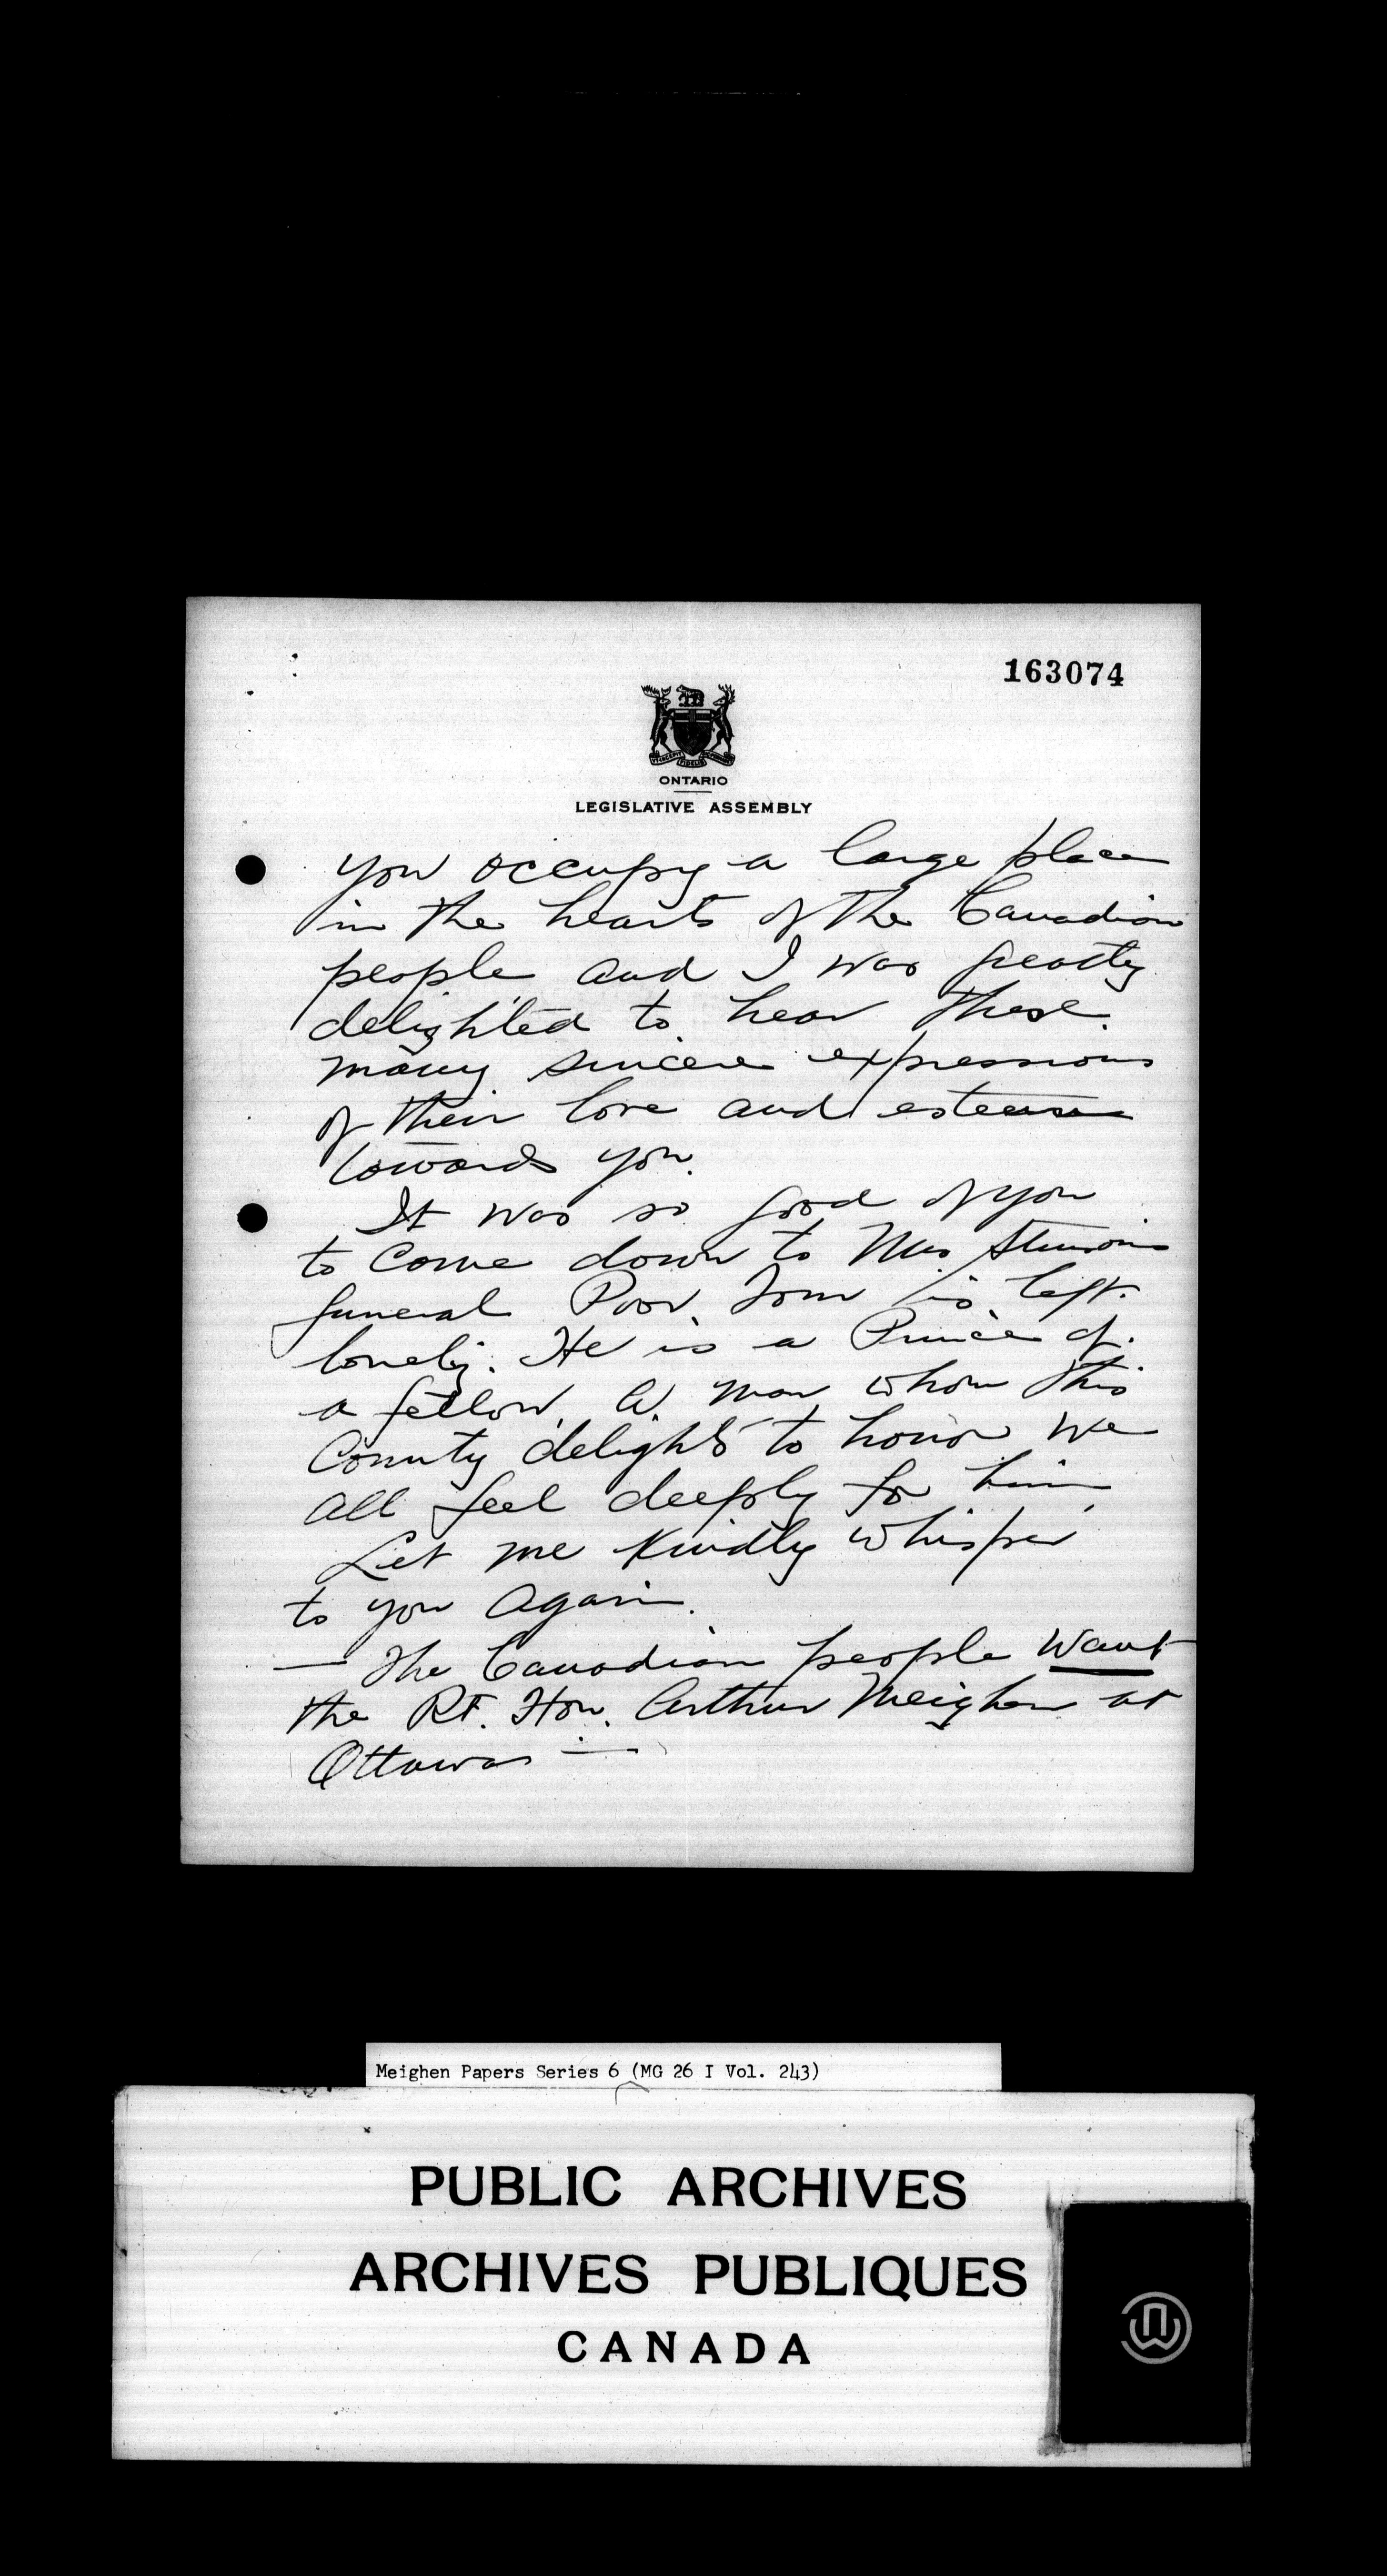 163074
ONTARIO
LEGISLATIVE ASSEMBLY
you occupy a large place
in the hearts of the Canadian
people and I was greatly
delighted to hear these
many sincere expressions
of their love and esteem
towards you.
It was so good of you
to come down to Mrs
funeral Poor Tom is left
lonely. He is a Prince of
a fellow. A man whom this
County delights to honor We
all feel deeply for him
Let me kindly whisper
to you again.
— The Canadian people want
the Rt. Hon. Arthur Meighen at
Ottawa —
Meighen Papers Series 6 (MG 26 I Vol. 243)
PUBLIC ARCHIVES
ARCHIVES PUBLIQUES
CANADA